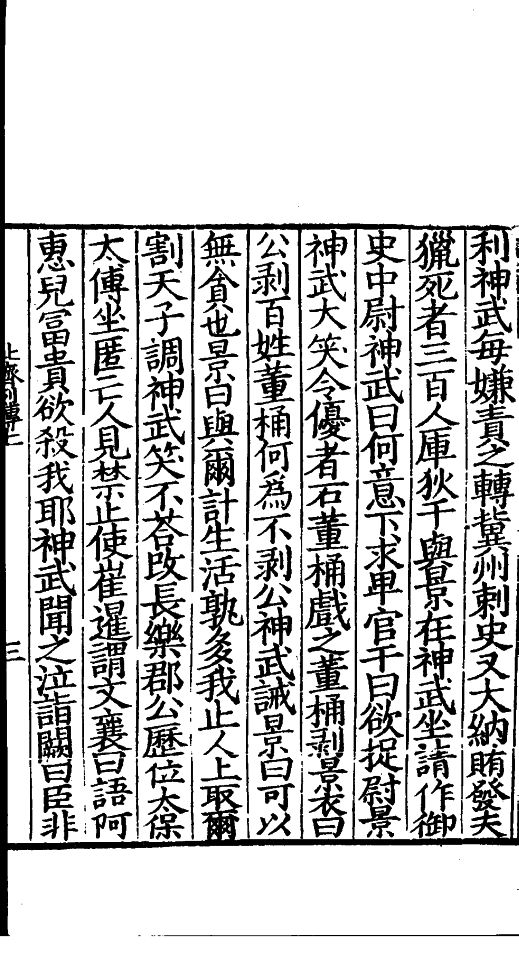 利神武每嫌責之轉冀州刺史又大納賄發夫
獵死者三百人庫狄干與景在神武坐請作御
史中尉神武曰何意下求卑官干曰欲捉尉景
神武大笑令優者石董桶戲之董桶剥景衣曰
公剥百姓董桶何爲不剥公神武誡景曰可以
無貪也景曰與爾計生活孰多我止人上取爾
割天子調神武笑不荅改長樂郡公歷位太保
太傅坐匿亡人見禁止使崔暹謂文襄曰語阿
惠兒冨貴欲殺我耶神武聞之泣詣闕曰臣非
北齊列傳二
三